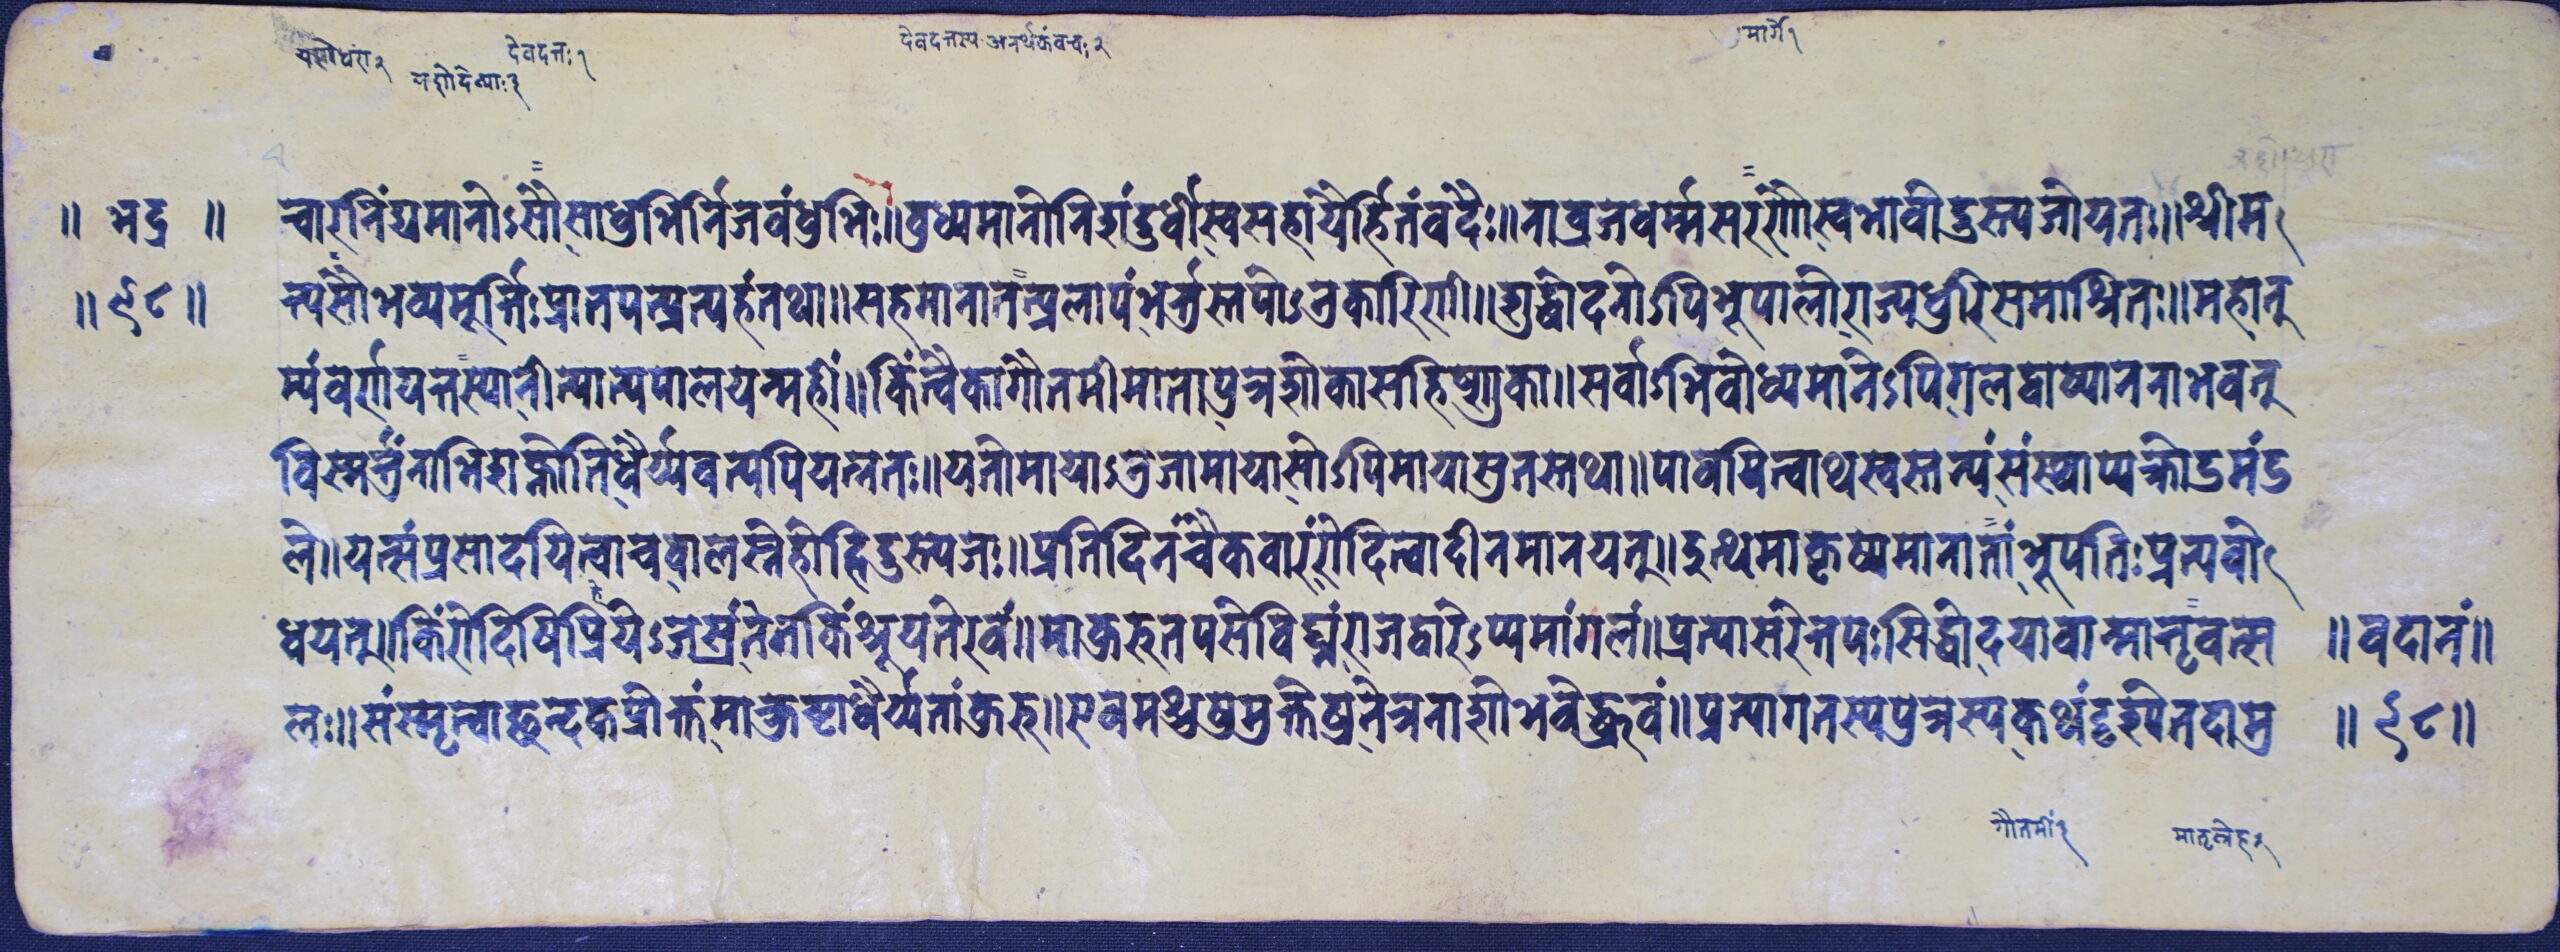 यशोधरां२
देवदत्तः१
यशोदेव्याः३
देवदत्तस्य अनर्थकंवचः२
मार्गे१
॥ भद्र ॥
न्वारनिंद्यमानोऽसौसाधुभिर्निजबंधुभिः॥बुध्यमानोनिशंदुर्धीस्वसहायैर्हितंवदैः॥नाव्रजधर्म्मसरणौस्वभावोदुस्त्यजोयतः॥श्रीम
॥ ९८ ॥
त्यसौभव्यमूर्त्तिःप्रातपत्प्रत्यहंतथा॥सहमानातत्प्रलापंभर्त्तुस्तपोऽनुकारिणी॥शुद्धोदनोऽपिभूपालोराज्यधुरिसमाश्रितः॥महानु
र्म्यंवर्णायत्तस्थानीत्यान्वपालयन्महीं॥किंत्वेकागौतमीमातापुत्रशोकासहिष्णुका॥सर्वाऽभिबोध्यमानेऽपिगलद्वाष्पाननाभवत्
विस्मर्त्तुंनाभिशक्नोतिधैर्य्यवत्यपियत्नतः॥यतोमायाऽनुजामायासोऽपिमायासुतस्तथा॥पाययित्वाथस्वस्तन्यंसंस्थाप्यक्रोडमंड
ले॥यत्संप्रसादयित्वाचबालस्नेहोहिदुस्त्यजः॥प्रतिदिनंचैकवारंरोदित्वादीनमानयत्॥इत्थमाकृष्यमानातांभूपतिःप्रत्यबो
धयत्॥किंरोदिषिप्रियेऽजस्रंतेनकिंश्रूयतेरवं॥माकुरुतपसेविघ्नंराजद्वारेऽप्यमांगलं॥प्रत्यासरेत्तपःसिद्धोदयावान्मातृवत्स
॥ वदानं॥
लः॥संस्मृत्वाछन्दकप्रोक्तंमाक्रुष्टाधैर्य्यतांकुरु॥एवमश्रुप्रमुक्तेषुनेत्रनाशोभवेद्ध्रुवं॥प्रत्यागतस्यपुत्रस्यकथंदृश्येतदामु
॥ ९८॥
गौतमीं२
मातृस्नेह२